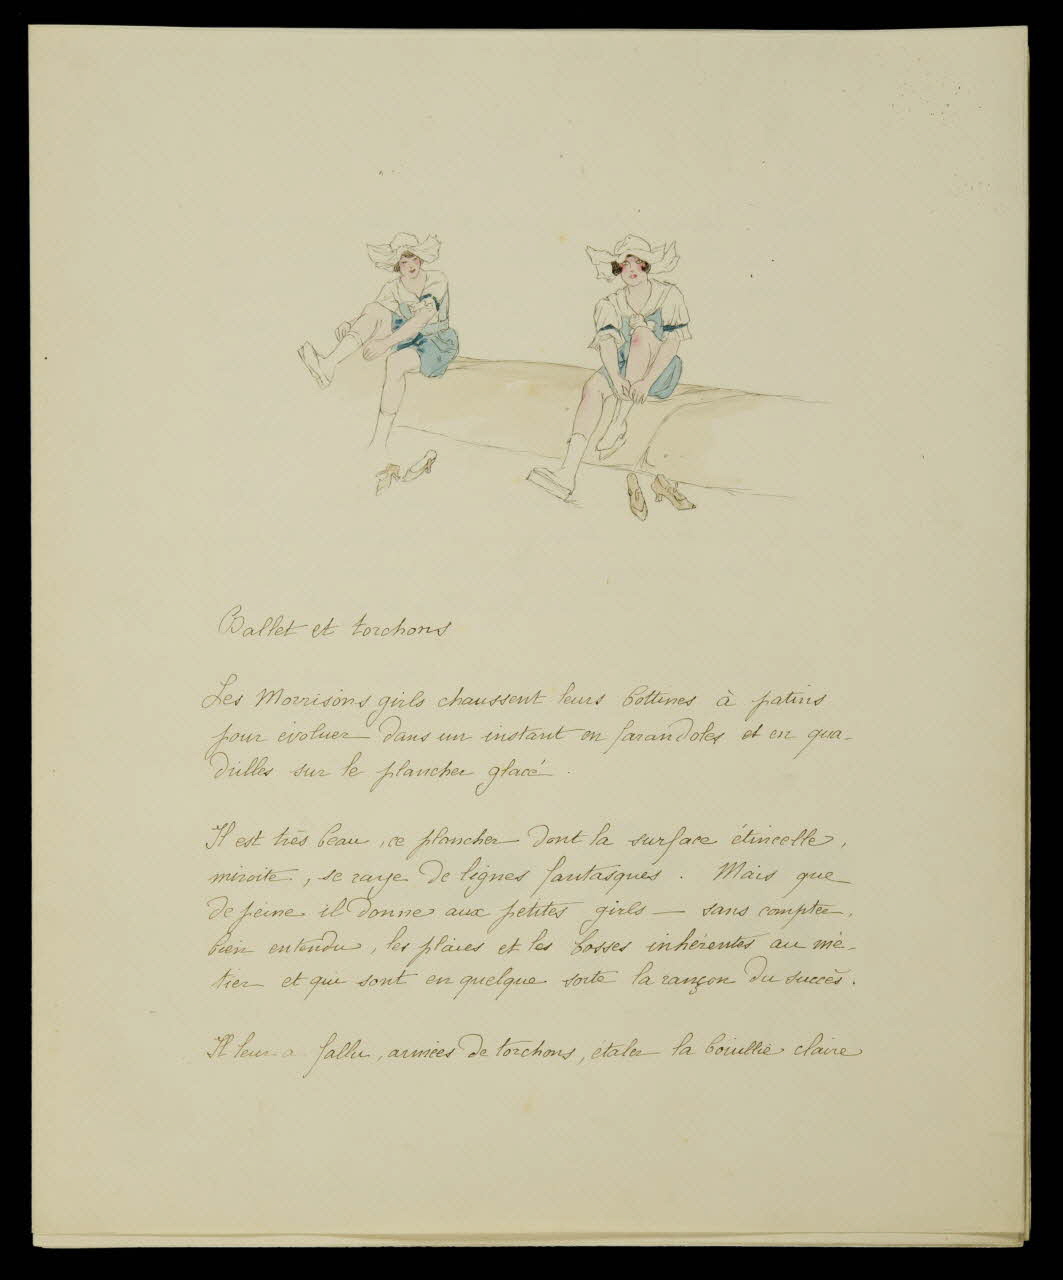 Ballet et torchons
Les Morrisons girls chaussent leurs bottines à patins
pour évoluer dans un instant en farandoles et en qua-
drilles sur le plancher glacé.
Il est très beau, ce plancher dont la surface étincelle,
miroite, se raye de lignes fantasques. Mais que
de peine il donne aux petites girls — sans compter,
bien entendu, les plaies et les bosses inhérentes au mé-
tier et qui sont en quelque sorte la rançon du succès.
Il leur a fallu, armées de torchons, étaler la bouillie claire